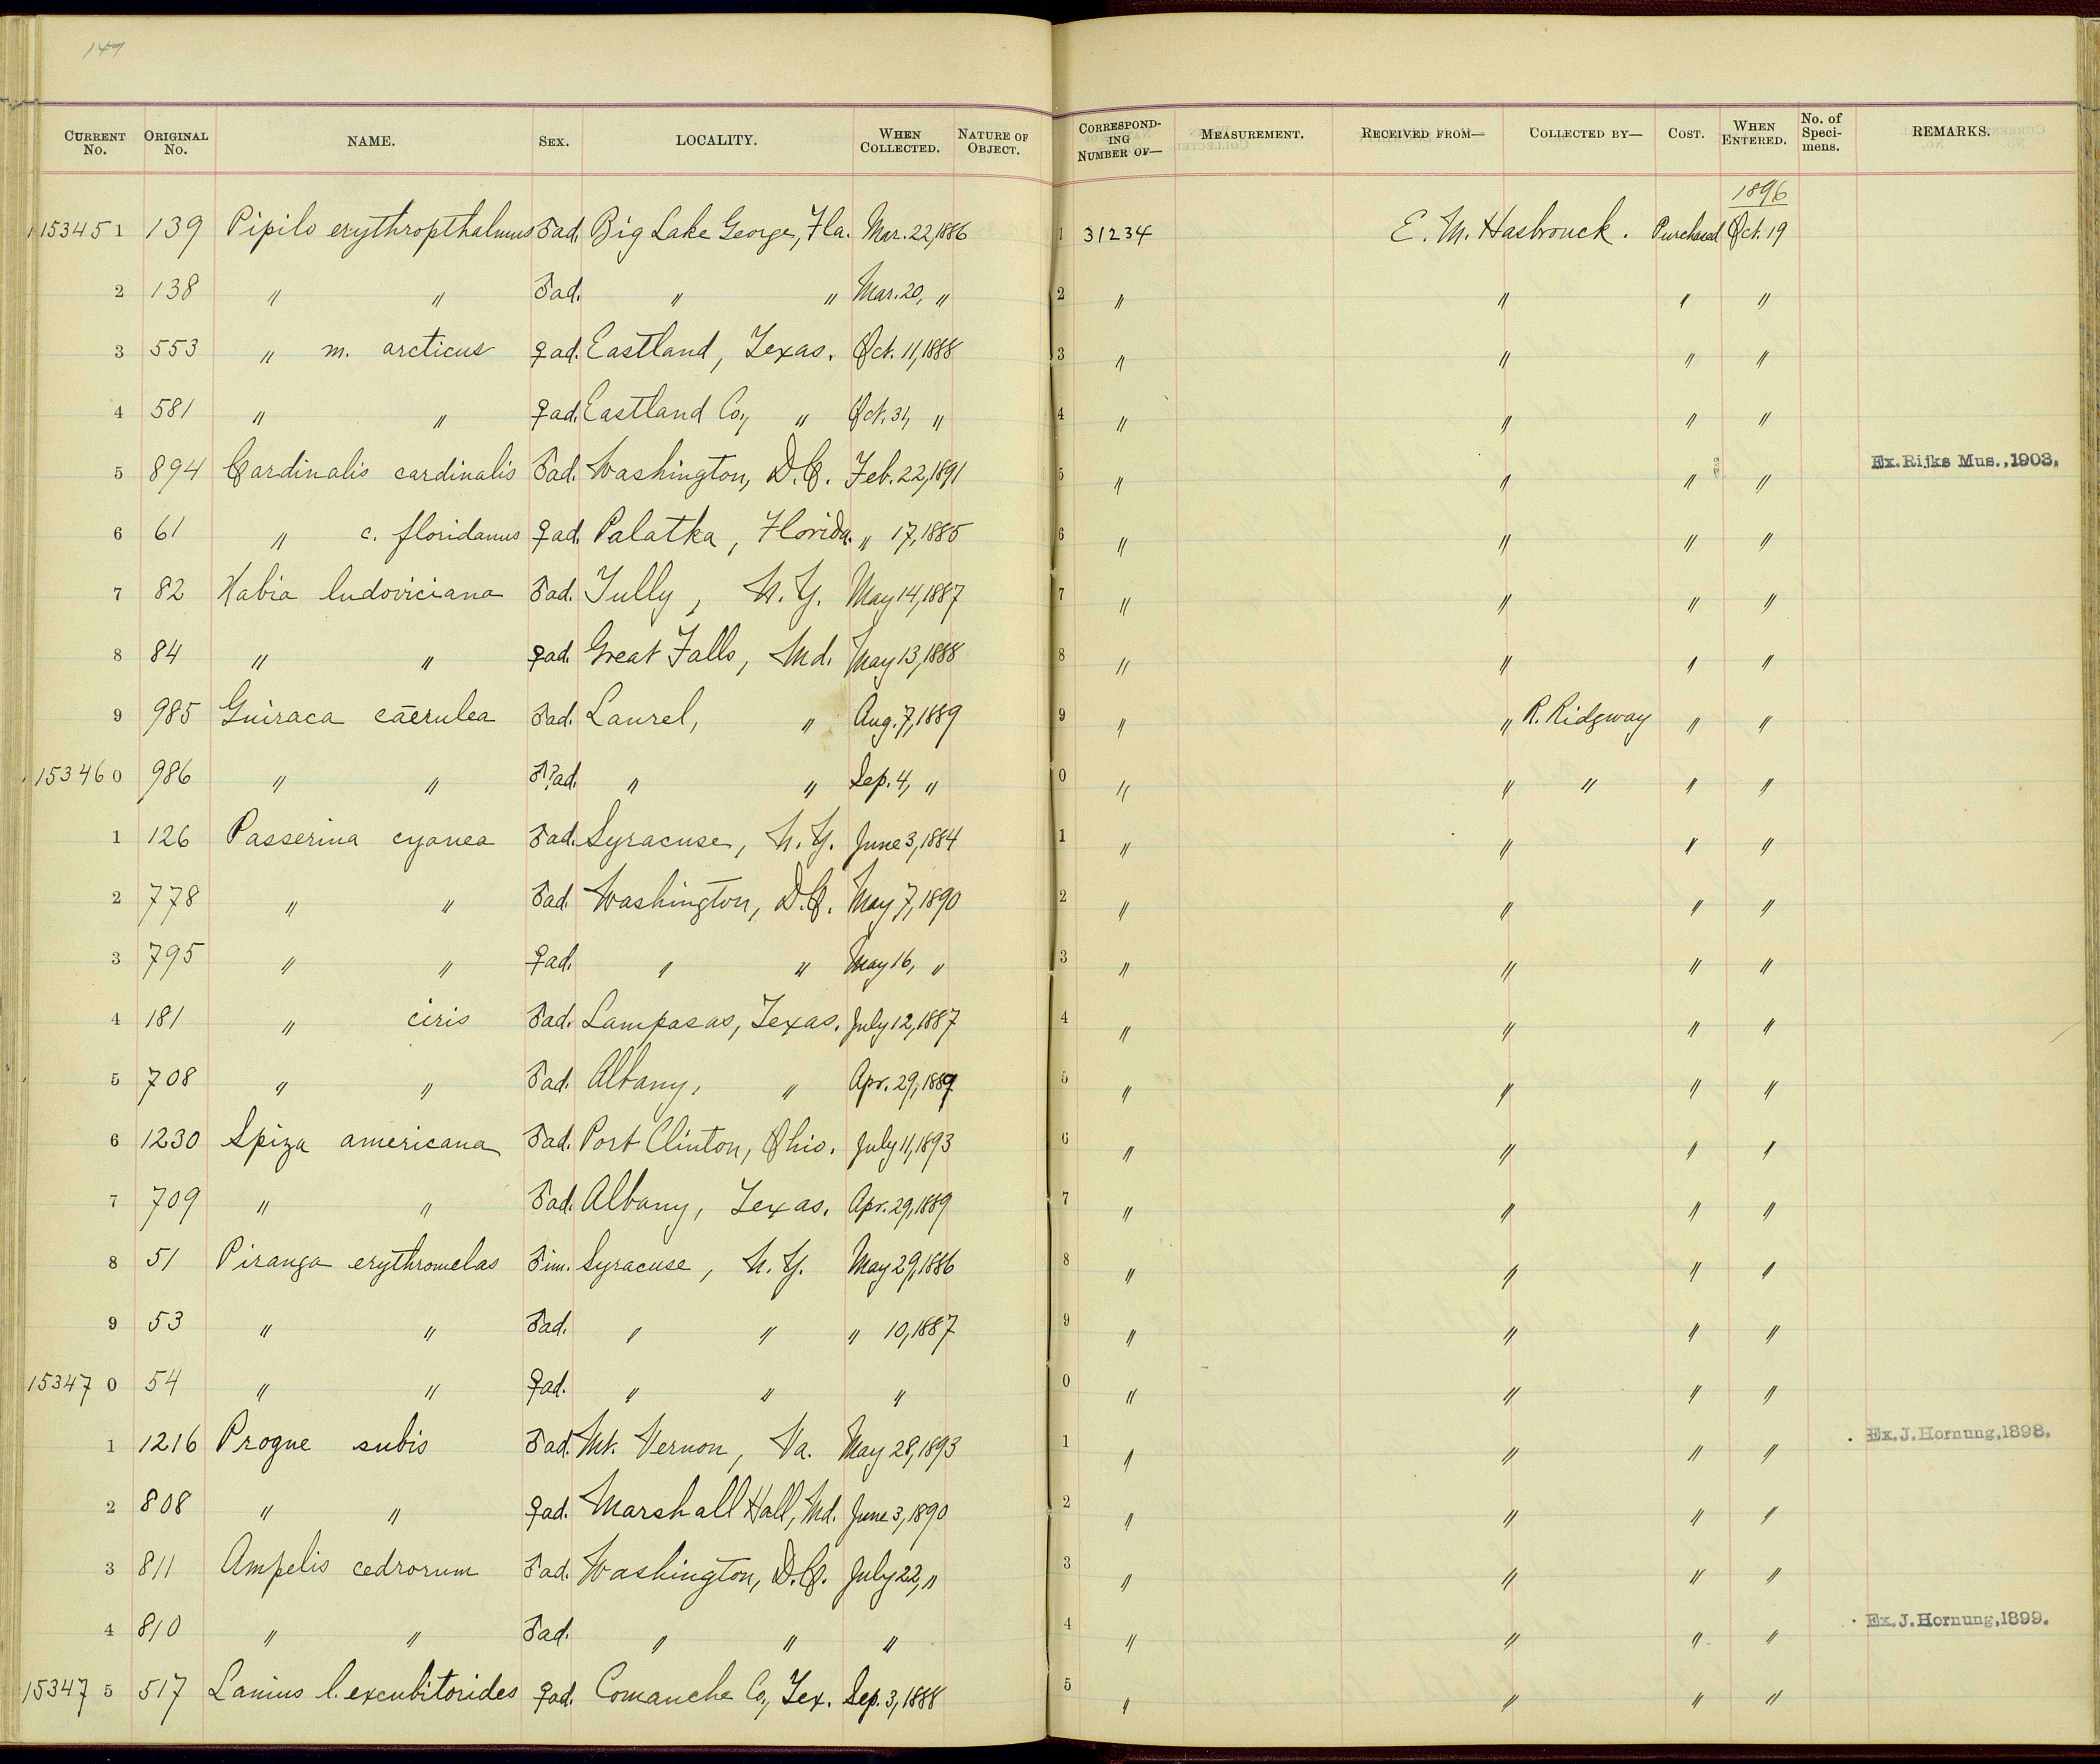 147
CURRENT No. ORIGINAL No. NAME. SEX. LOCALITY. WHEN COLLECTED. NATURE OF OBJECT. CORRESPONDING NUMBER OF— MEASUREMENT. RECEIVED FROM— COLLECTED BY— COST. WHEN ENTERED. No. of Specimens. REMARKS.
1896
153451 139 Pipilo erythropthalmus ♂ad. Big Lake George, Fla. Mar. 22, 1886 1 31234 E. M. Hasbrouck. Purchased Oct. 19
2 138 " " ♂ad. " " Mar. 20, " 2 " " " "
3 553 " m. arcticus ♀ad. Eastland, Texas. Oct. 11, 1888 3 " " " "
4 581 " " ♀ad. Eastland Co., " Oct. 31, " 4 " " " "
5 894 Cardinalis cardinalis ♂ad. Washington, D.C. Feb. 22, 1891 5 " " " " Ex. Rijks Mus., 1903.
6 61 " c. floridanus ♀ad. Palatka, Florida. " 17, 1885 6 " " " "
7 82 Habia ludoviciana ♂ad. Tully, N.Y. May 14, 1887 7 " " " "
8 84 " " ♀ad. Great Falls, Md. May 13, 1888 8 " " " "
9 985 Guiraca caerulea ♂ad. Laurel, " Aug. 7, 1889 9 " " R. Ridgway " "
153460 986 " " ♂?ad. " " Sep. 4, " 0 " " " " "
1 126 Passerina cyanea ♂ad. Syracuse, N.Y. June 3, 1884 1 " " " "
2 778 " " ♂ad. Washington, D.C. May 7, 1890 2 " " " "
3 795 " " ♀ad. " " May 16, " 3 " " " "
4 181 " ciris ♂ad. Lampasas, Texas. July 12, 1887 4 " " " "
5 708 " " ♂ad. Albany, " Apr. 29, 1889 5 " " " "
6 1230 Spiza americana ♂ad. Port Clinton, Ohio. July 11, 1893 6 " " " "
7 709 " " ♂ad. Albany, Texas. Apr. 29, 1889 7 " " " "
8 51 Piranga erythromelas ♂im. Syracuse, N.Y. May 29, 1886 8 " " " "
9 53 " " ♂ad. " " " 10, 1887 9 " " " "
153470 54 " " ♀ad. " " " 0 " " " "
1 1216 Progne subis ♂ad. Mt. Vernon, Va. May 28, 1893 1 " " " " Ex. J. Hornung, 1898.
2 808 " " ♀ad. Marshall Hall, Md. June 3, 1890 2 " " " "
3 811 Ampelis cedrorum ♂ad. Washington, D.C. July 22, " 3 " " " "
4 810 " " ♂ad. " " " 4 " " " " Ex. J. Hornung, 1899.
153475 517 Lanius l. excubitorides ♀ad. Comanche Co., Tex. Sep. 3, 1888 5 " " " "